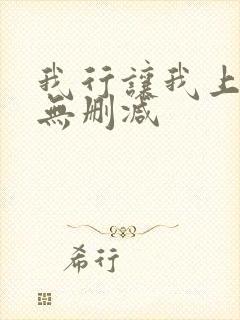 我行讓我上
無刪減
希行